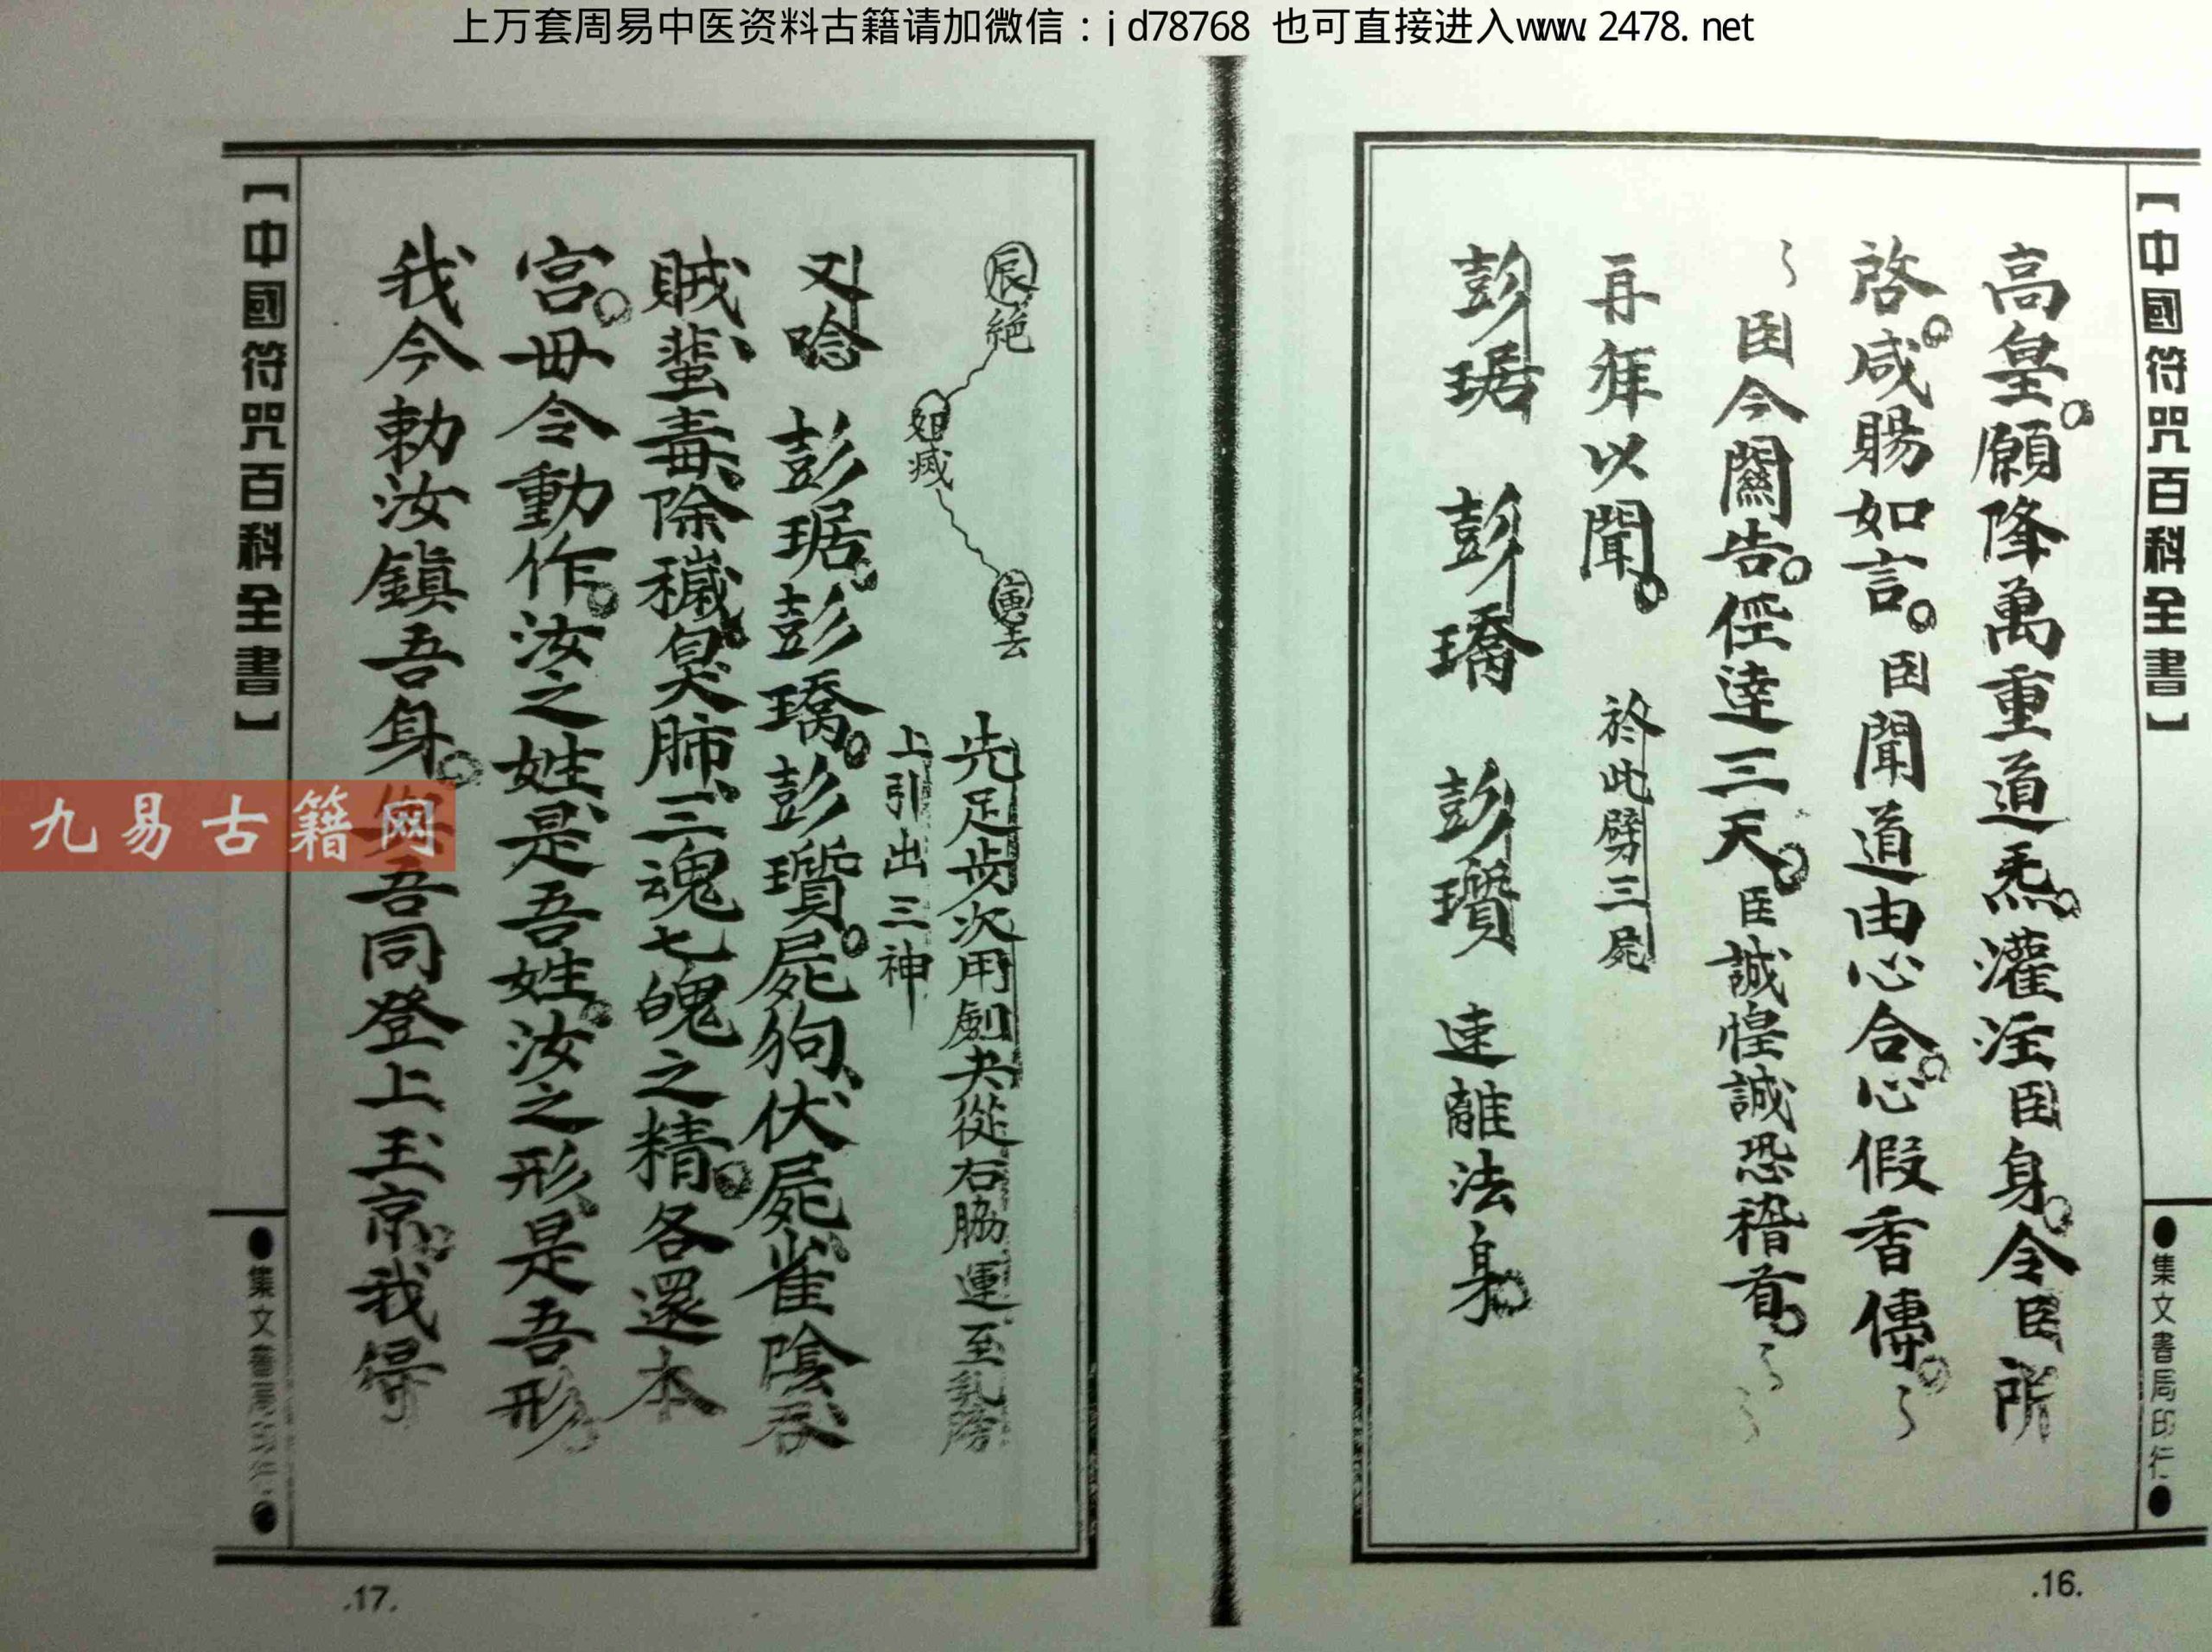 上万套周易中医资料古籍请加微信：jd78768 也可直接进入www.2478.net
【中國符咒百科全書】
●集文書局印行●
高皇。願降萬重道炁。灌注臣身。令臣所
啓。咸賜如言。臣聞道由心合。心假香傳。
臣今關告。徑達三天。臣誠惶誠恐稽首。
再拜以聞。 於此劈三屍
彭琚 彭瓆 離法身。
.16.
辰絶
滅
去
先足步次用劍夬從右脇運至乳
上引出三神
又唸 彭琚。彭。彭瓆。屍狗、伏屍、雀陰、吞
賊、蜚毒、除穢、臭肺、三魂七魄之精。各還本
宫。毋令動作。汝之姓、是吾姓。汝之形、是吾形。
我今勅汝鎮吾身。吾同登上玉京。我得
【中國符咒百科全書】
●集文書局印行●
.17.
九易古籍网